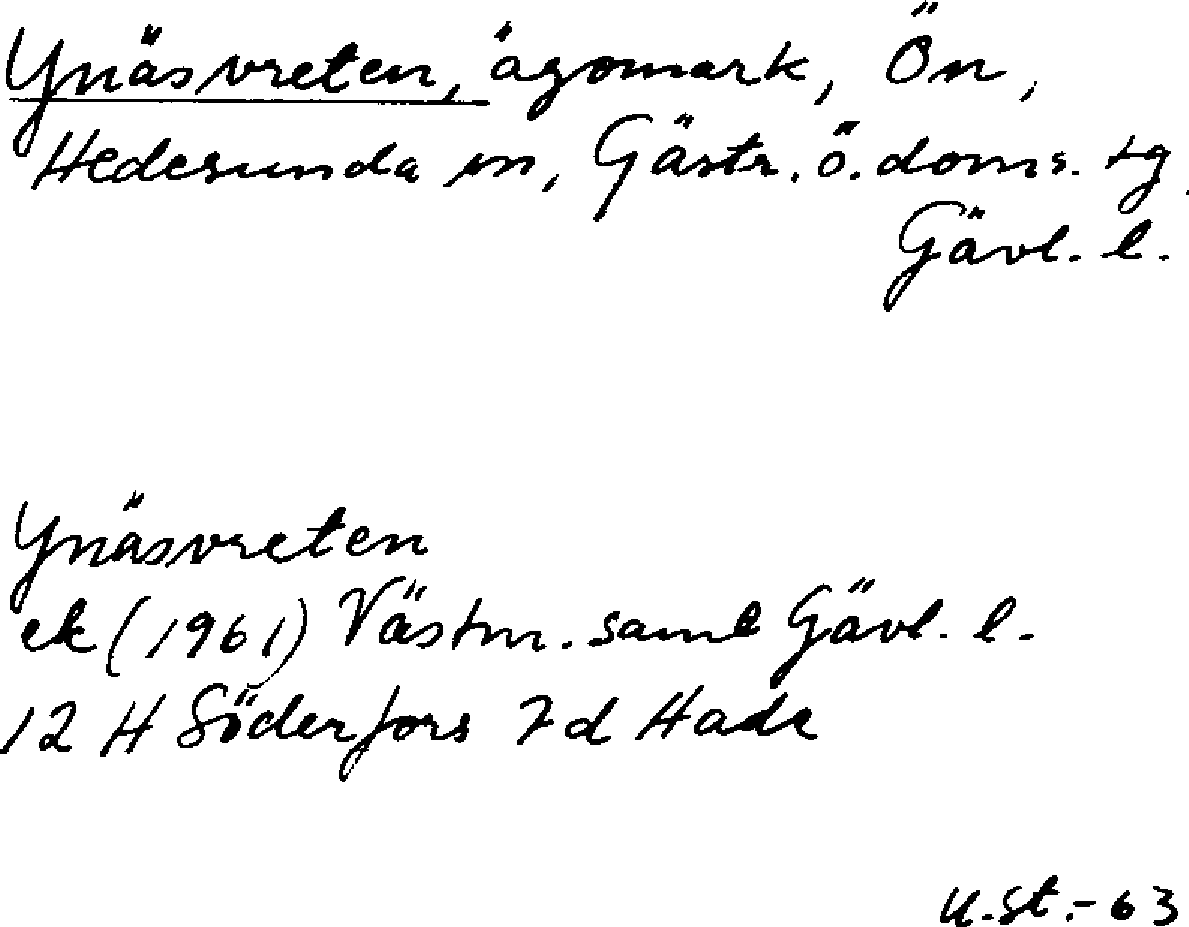 Ynäsvreten, ägomark, Ön,
Hedesunda sn, Gästr. ö. doms. tg
Gävl. l.
Ynäsvreten
ek (1961) Västm. samt Gävl. l.
12 H Söderfors 7 d Hade
U.St.-63